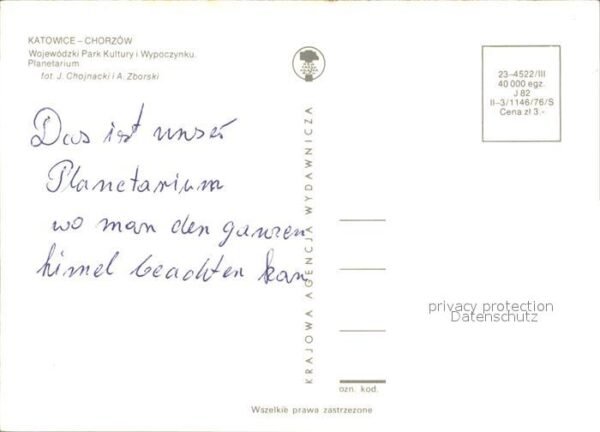 KATOWICE – CHORZÓW
Wojewódzki Park Kultury i Wypoczynku.
Planetarium
fot. J. Chojnacki i A. Zborski
Das ist unser
Planetarium
wo man den ganzen
himel beachten kan
KRAJOWA AGENCJA WYDAWNICZA
23–4522/III
40 000 egz.
J 82
II–3/1146/76/S
Cena zł 3.–
privacy protection
Datenschutz
ozn. kod.
Wszelkie prawa zastrzeżone